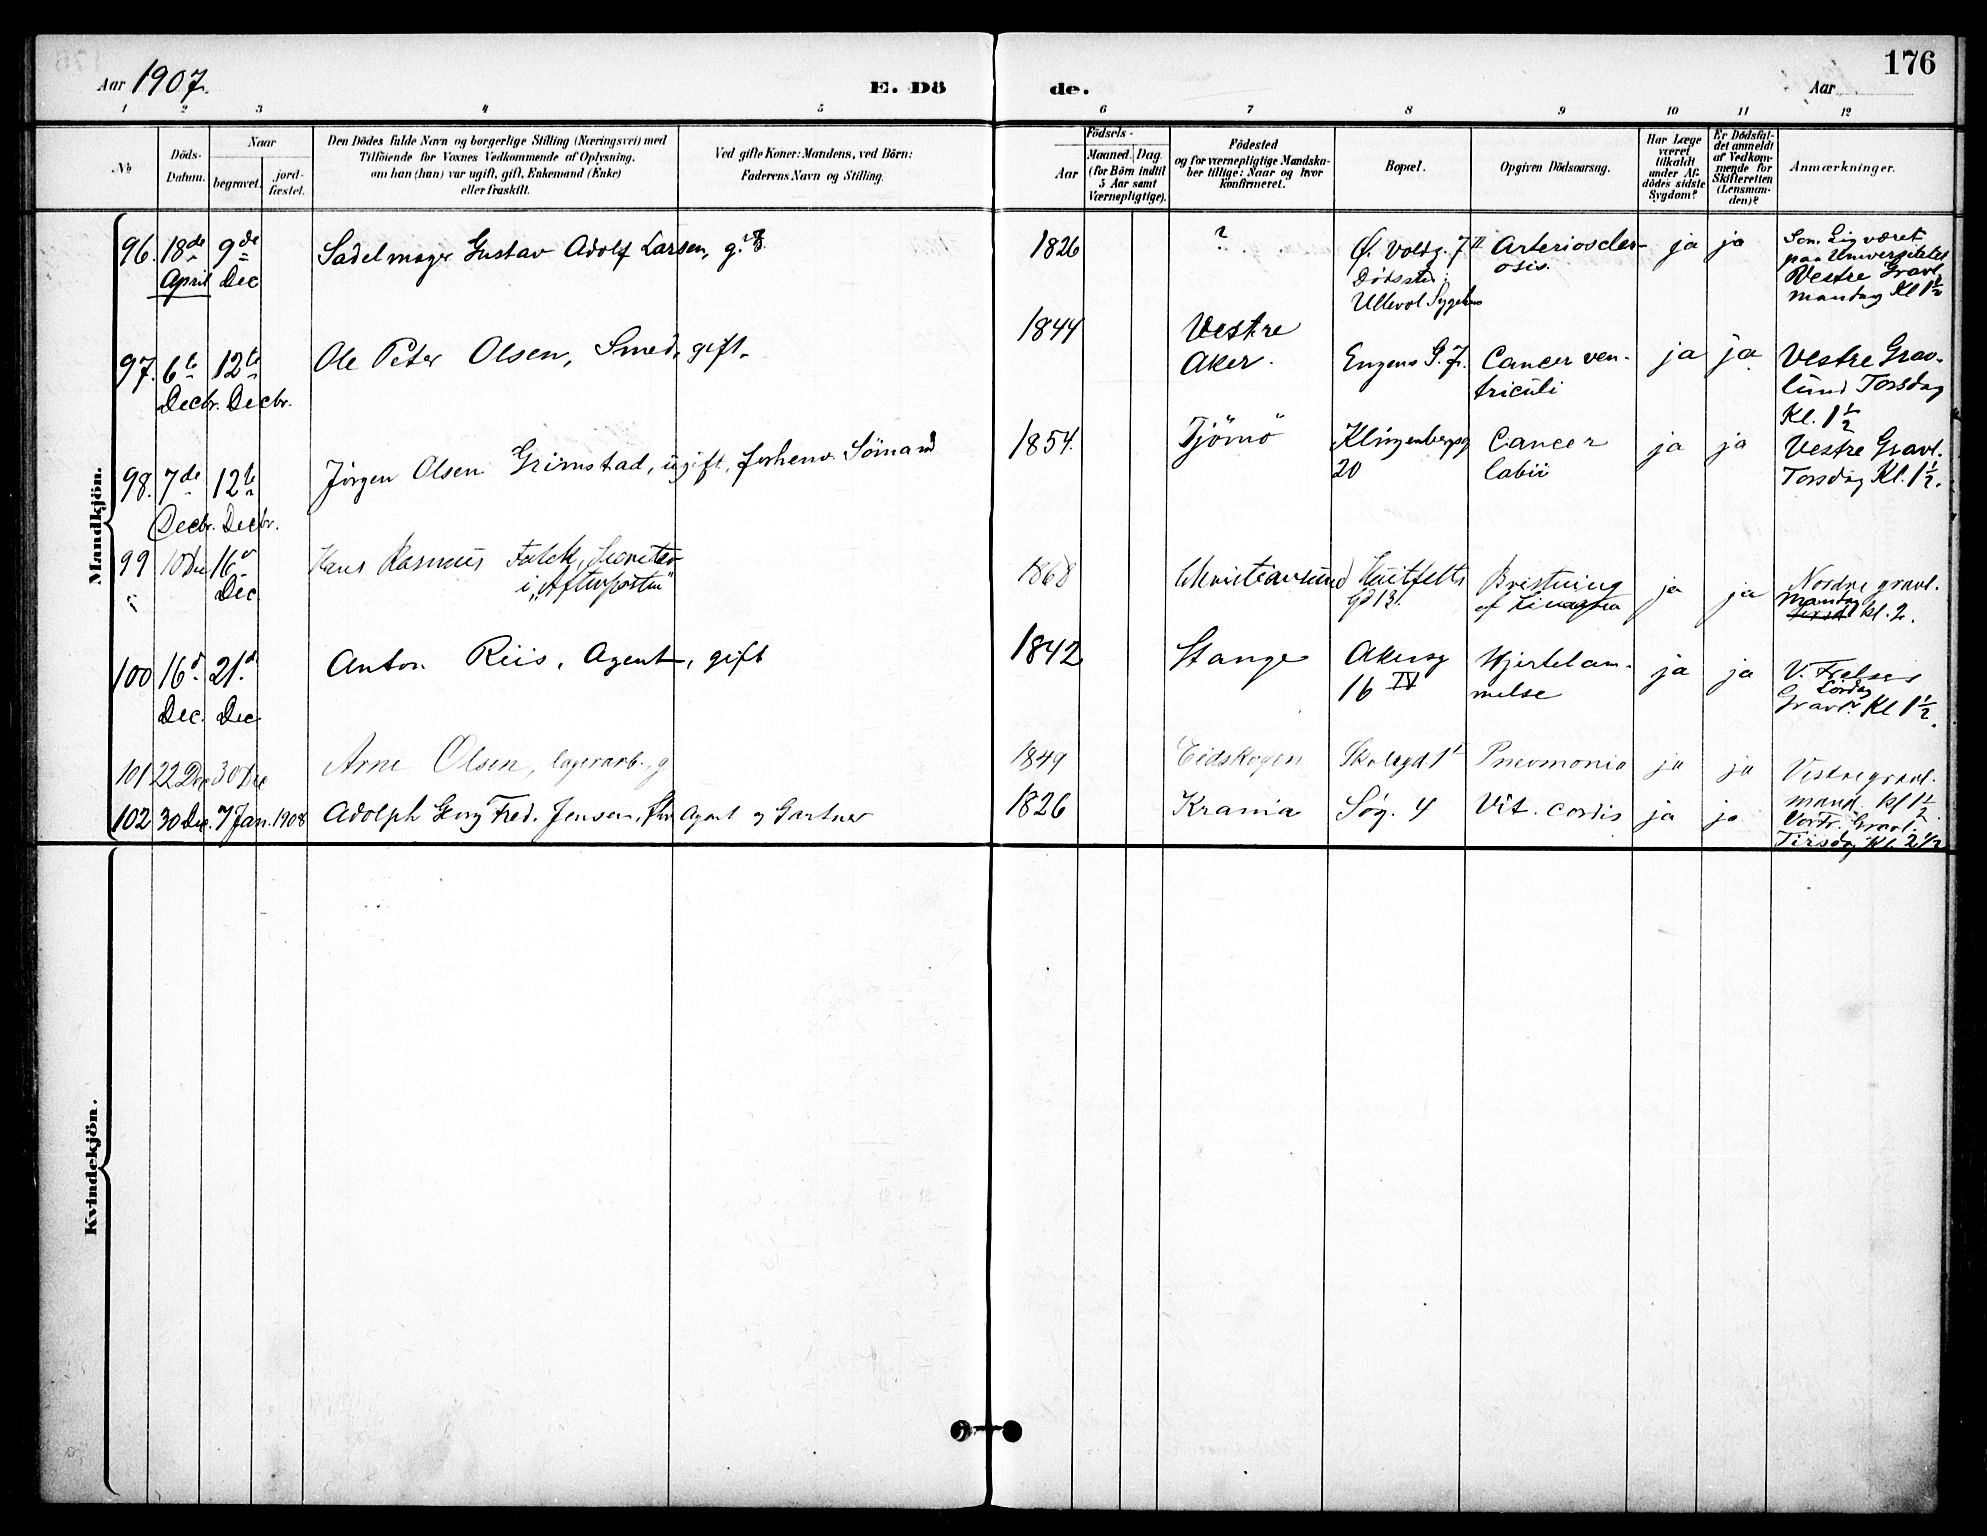 176
Aar 1907.
E. Dö
de.
Aar
1 2 3 4 5 6 7 8 9 10 11 12
No
Döds-
Datum.
Naar
begravet.
jord-
fæstet.
Den Dödes fulde Navn og borgerlige Stilling (Næringsvei) med
Tilföiende for Voxnes Vedkommende af Oplysning,
om han (hun) var ugift, gift, Enkemand (Enke)
eller fraskilt.
Ved gifte Koner: Mandens, ved Börn:
Faderens Navn og Stilling.
Födsels-
Aar
Maaned. Dag.
(for Börn indtil
5 Aar samt
Værnepligtige).
Födested
og for værnepligtige Mandska-
ber tillige: Naar og hvor
konfirmeret.
Bopæl.
Opgiven Dödsaarsag.
Har Læge
været
tilkaldt
under Af-
dödes sidste
Sygdom?
Er Dödsfal-
det anmeldt
af Vedkom-
mende for
Skifteretten
(Lensman-
den)?
Anmærkninger.
Mandkjön.
96. 18de April 9de Dec Sadelmager Gustav Adolf Larsen, g. 1826 ? Ø. Voldg. 7 II Arterioscler- ja ja
Dödssted: osis.
Ullevol Sygehus
Som Lig været
paa Universitetet
Vestre Gravl.
Mandag Kl 1 1/2
97. 6te Decbr. 12te Decbr. Ole Peter Olsen, Smed, gift. 1844 Vestre
Aker. Engens G. 7. Cancer ven-
triculi ja ja Vestre Grav-
lund Torsdag
Kl. 1 1/2
98. 7de Decbr. 12te Decbr. Jörgen Olsen Grimstad, ugift, forhenv. Sömand 1854. Tjömö Klingenbergsg
20 Cancer
labii ja ja Vestre Gravl.
Torsdag Kl. 1 1/2.
99 10 Dec 16 Dec. Hans Rasmus Falck,
i "Aftenposten" 1868 Christiansund Huitfelts
Gd 13. Bristning
af ja ja Nordre gravl.
Mandag kl. 2.
100 16 Dec. 21. Dec Anton Riis, Agent, gift 1842 Stange Akersg
16 IV Hjertelam-
melse ja ja V. Frelsers
Lördag
Gravl. Kl 1 1/2.
101 22 Dec 30 Dec Arne Olsen, lagerarb., g 1849 Eidskogen Skolegd 1 Pneumonia ja ja Vestre gravl.
mand. kl 1 1/2.
102 30 Dec. 7 Jan. 1908 Adolph Georg Fred. Jensen, Agent og Gartner 1826 Krania Søg. 4 Vit. cordis ja ja Vor Fr. Gravl.
Tirsdag Kl 2 1/2
Kvindekjön.